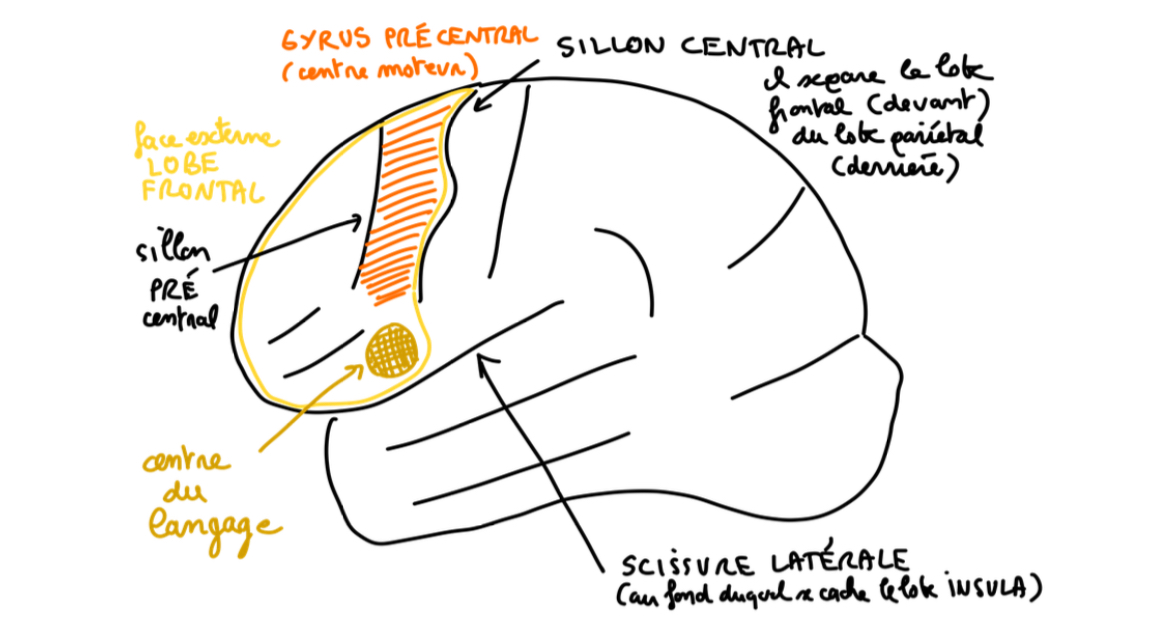 GYRUS PRÉCENTRAL
(centre moteur)
SILLON CENTRAL
Il separe le lobe
frontal (devant)
du lobe pariétal
(derriere)
face externe
LOBE
FRONTAL
sillon
PRÉ
central
centre
du
langage
SCISSURE LATÉRALE
(au fond duquel se cache le lobe INSULA)